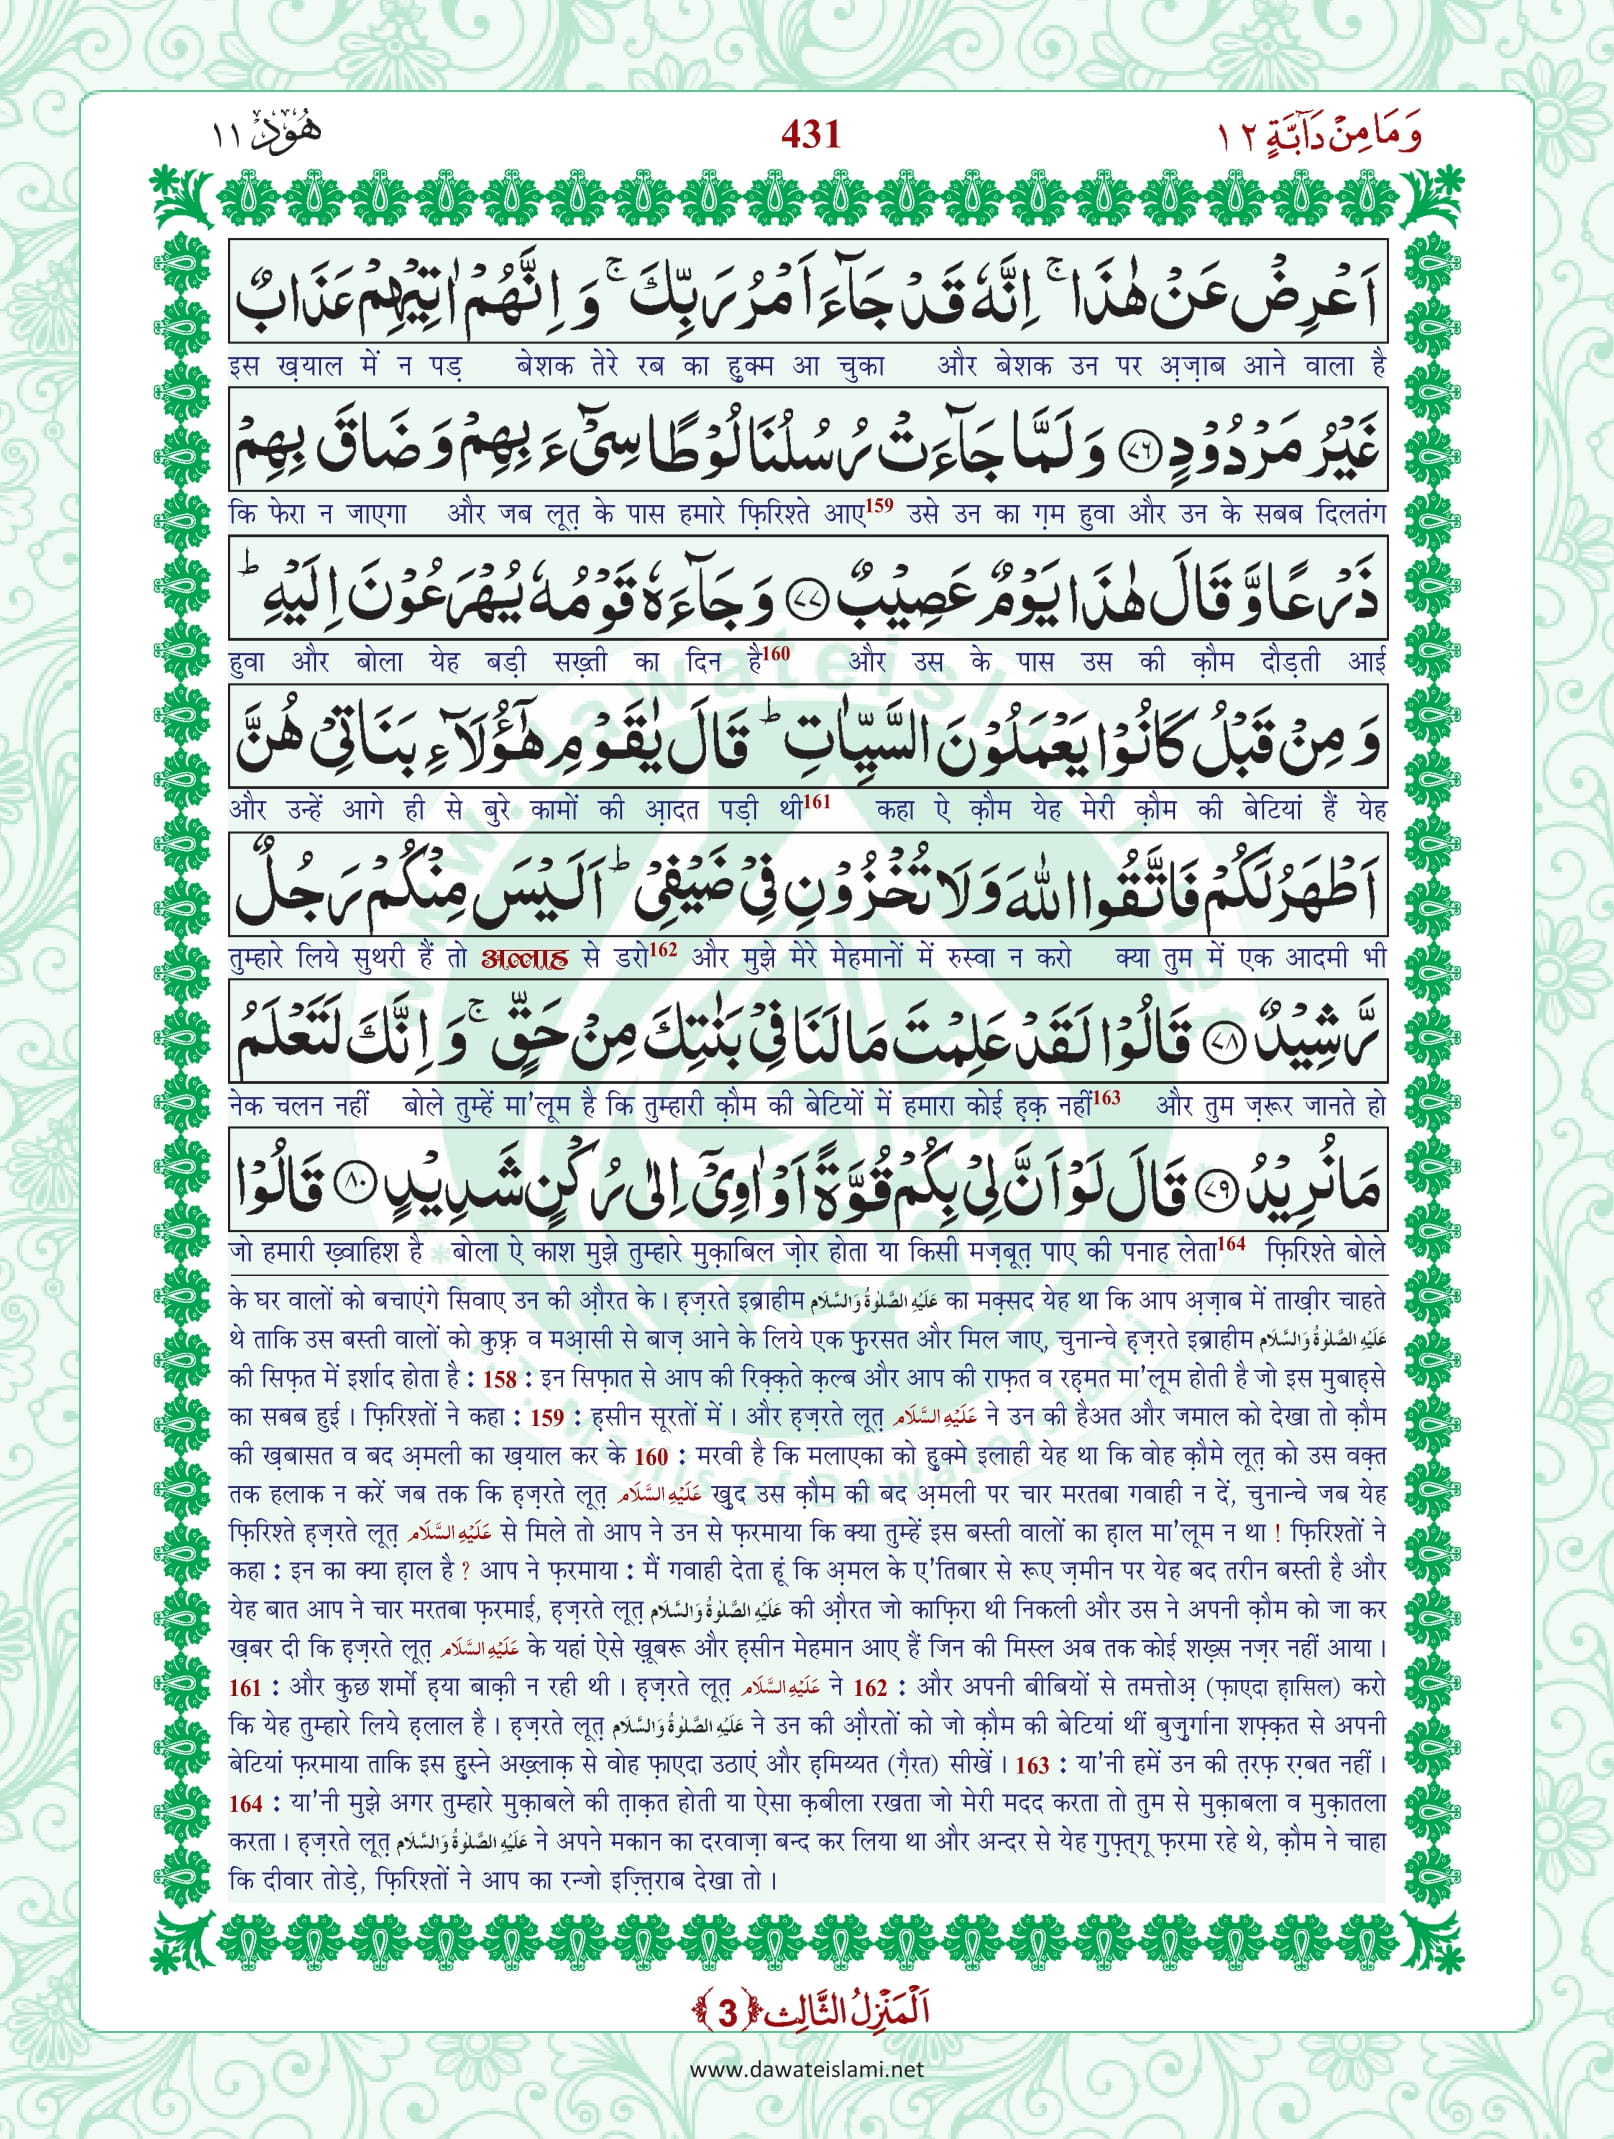 وَمَا مِنْ دَآبَّةٍ ١٢
431
هُوْد ١١
اَعْرِضْ عَنْ هٰذَا ۚ اِنَّهٗ قَدْ جَآءَ اَمْرُ رَبِّكَ ۚ وَ اِنَّهُمْ اٰتِیْهِمْ عَذَابٌ
इस ख़याल में न पड़ बेशक तेरे रब का हुक्म आ चुका और बेशक उन पर अ़ज़ाब आने वाला है
غَیْرُ مَرْدُوْدٍ ﴿۷۶﴾ وَ لَمَّا جَآءَتْ رُسُلُنَا لُوْطًا سِیْٓءَ بِهِمْ وَ ضَاقَ بِهِمْ
कि फेरा न जाएगा और जब लूत़ के पास हमारे फ़िरिश्ते आए159 उसे उन का ग़म हुवा और उन के सबब दिलतंग
ذَرْعًا وَّ قَالَ هٰذَا یَوْمٌ عَصِیْبٌ ﴿۷۷﴾ وَ جَآءَهٗ قَوْمُهٗ یُهْرَعُوْنَ اِلَیْهِ ؕ
हुवा और बोला येह बड़ी सख़्ती का दिन है160 और उस के पास उस की क़ौम दौड़ती आई
وَ مِنْ قَبْلُ كَانُوْا یَعْمَلُوْنَ السَّیِّاٰتِ ؕ قَالَ یٰقَوْمِ هٰۤؤُلَآءِ بَنَاتِیْ هُنَّ
और उन्हें आगे ही से बुरे कामों की आ़दत पड़ी थी161 कहा ऐ क़ौम येह मेरी क़ौम की बेटियां हैं येह
اَطْهَرُ لَكُمْ فَاتَّقُوا اللّٰهَ وَ لَا تُخْزُوْنِ فِیْ ضَیْفِیْ ؕ اَلَیْسَ مِنْكُمْ رَجُلٌ
तुम्हारे लिये सुथरी हैं तो अल्लाह से डरो162 और मुझे मेरे मेहमानों में रुस्वा न करो क्या तुम में एक आदमी भी
رَّشِیْدٌ ﴿۷۸﴾ قَالُوْا لَقَدْ عَلِمْتَ مَا لَنَا فِیْ بَنٰتِكَ مِنْ حَقٍّ ۚ وَ اِنَّكَ لَتَعْلَمُ
नेक चलन नहीं बोले तुम्हें मा'लूम है कि तुम्हारी क़ौम की बेटियों में हमारा कोई ह़क़ नहीं163 और तुम ज़रूर जानते हो
مَا نُرِیْدُ ﴿۷۹﴾ قَالَ لَوْ اَنَّ لِیْ بِكُمْ قُوَّةً اَوْ اٰوِیْۤ اِلٰی رُكْنٍ شَدِیْدٍ ﴿۸۰﴾ قَالُوْا
जो हमारी ख़्वाहिश है बोला ऐ काश मुझे तुम्हारे मुक़ाबिल ज़ोर होता या किसी मज़बूत़ पाए की पनाह लेता164 फ़िरिश्ते बोले
के घर वालों को बचाएंगे सिवाए उन की औ़रत के । ह़ज़रते इब्राहीम عَلَيْهِ الصَّلٰوةُ وَالسَّلَام का मक़्सद येह था कि आप अ़ज़ाब में ताख़ीर चाहते
थे ताकि उस बस्ती वालों को कुफ़्र व मआ़सी से बाज़ आने के लिये एक फ़ुरसत और मिल जाए, चुनान्चे ह़ज़रते इब्राहीम عَلَيْهِ الصَّلٰوةُ وَالسَّلَام
की सिफ़त में इर्शाद होता है : 158 : इन सिफ़ात से आप की रिक़्क़ते क़ल्ब और आप की राफ़त व रह़मत मा'लूम होती है जो इस मुबाह़से
का सबब हुई । फ़िरिश्तों ने कहा : 159 : ह़सीन सूरतों में । और ह़ज़रते लूत़ عَلَيْهِ السَّلَام ने उन की हैअत और जमाल को देखा तो क़ौम
की ख़बासत व बद अ़मली का ख़याल कर के 160 : मरवी है कि मलाएका को हुक्मे इलाही येह था कि वोह क़ौमे लूत़ को उस वक़्त
तक हलाक न करें जब तक कि ह़ज़रते लूत़ عَلَيْهِ السَّلَام ख़ुद उस क़ौम की बद अ़मली पर चार मरतबा गवाही न दें, चुनान्चे जब येह
फ़िरिश्ते ह़ज़रते लूत़ عَلَيْهِ السَّلَام से मिले तो आप ने उन से फ़रमाया कि क्या तुम्हें इस बस्ती वालों का ह़ाल मा'लूम न था ! फ़िरिश्तों ने
कहा : इन का क्या ह़ाल है ? आप ने फ़रमाया : मैं गवाही देता हूं कि अ़मल के ए'तिबार से रूए ज़मीन पर येह बद तरीन बस्ती है और
येह बात आप ने चार मरतबा फ़रमाई, ह़ज़रते लूत़ عَلَيْهِ الصَّلٰوةُ وَالسَّلَام की औ़रत जो काफ़िरा थी निकली और उस ने अपनी क़ौम को जा कर
ख़बर दी कि ह़ज़रते लूत़ عَلَيْهِ السَّلَام के यहां ऐसे ख़ूबरू और ह़सीन मेहमान आए हैं जिन की मिस्ल अब तक कोई शख़्स नज़र नहीं आया ।
161 : और कुछ शर्मो ह़या बाक़ी न रही थी । ह़ज़रते लूत़ عَلَيْهِ السَّلَام ने 162 : और अपनी बीबियों से तमत्तोअ़ (फ़ाएदा ह़ासिल) करो
कि येह तुम्हारे लिये ह़लाल है । ह़ज़रते लूत़ عَلَيْهِ الصَّلٰوةُ وَالسَّلَام ने उन की औ़रतों को जो क़ौम की बेटियां थीं बुज़ुर्गाना शफ़्क़त से अपनी
बेटियां फ़रमाया ताकि इस हुस्ने अख़्लाक़ से वोह फ़ाएदा उठाएं और ह़मिय्यत (ग़ैरत) सीखें । 163 : या'नी हमें उन की त़रफ़ रग़्बत नहीं ।
164 : या'नी मुझे अगर तुम्हारे मुक़ाबले की त़ाक़त होती या ऐसा क़बीला रखता जो मेरी मदद करता तो तुम से मुक़ाबला व मुक़ातला
करता । ह़ज़रते लूत़ عَلَيْهِ الصَّلٰوةُ وَالسَّلَام ने अपने मकान का दरवाज़ा बन्द कर लिया था और अन्दर से येह गुफ़्त्गू फ़रमा रहे थे, क़ौम ने चाहा
कि दीवार तोड़े, फ़िरिश्तों ने आप का रन्जो इज़्त़िराब देखा तो ।
اَلْمَنْزِلُ الثَّالِث ﴿3﴾
www.dawateislami.net